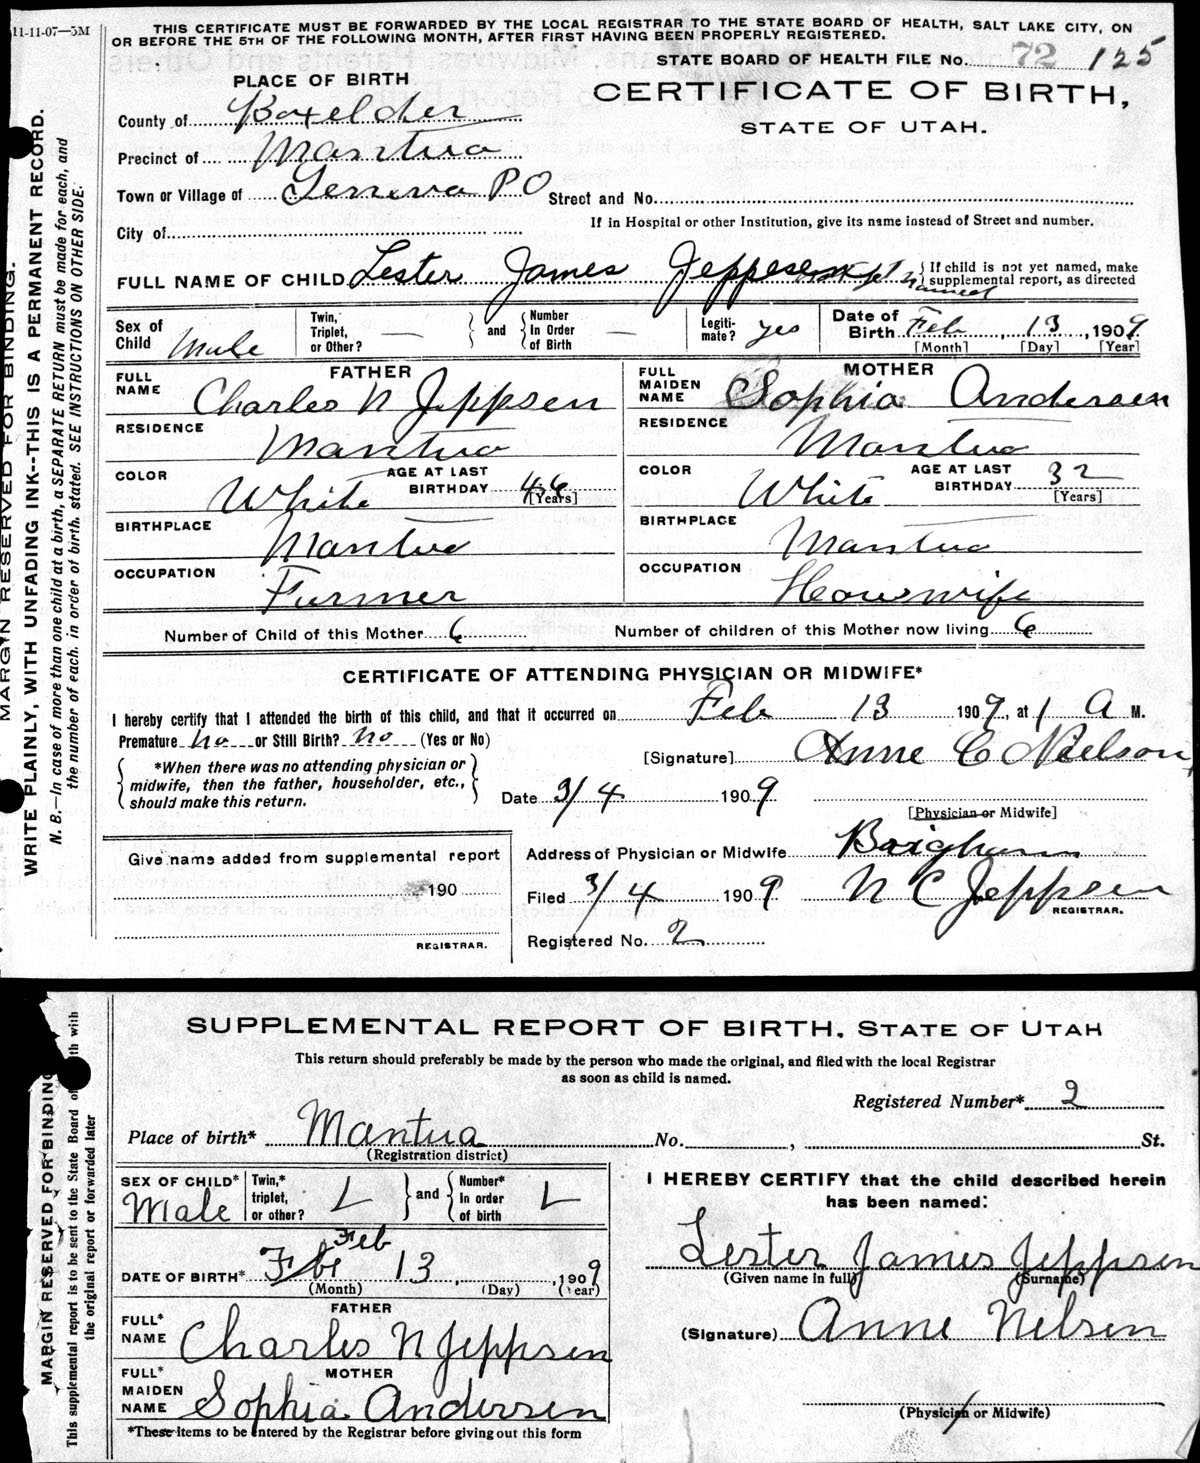 11-11-07—5M
THIS CERTIFICATE MUST BE FORWARDED BY THE LOCAL REGISTRAR TO THE STATE BOARD OF HEALTH, SALT LAKE CITY, ON
OR BEFORE THE 5TH OF THE FOLLOWING MONTH, AFTER FIRST HAVING BEEN PROPERLY REGISTERED.
STATE BOARD OF HEALTH FILE No. 72 125
PLACE OF BIRTH
CERTIFICATE OF BIRTH,
STATE OF UTAH.
County of Boxelder
Precinct of Mantua
Town or Village of Geneva P O Street and No.
If in Hospital or other Institution, give its name instead of Street and number.
City of
FULL NAME OF CHILD Lester James Jeppesen not yet named { If child is not yet named, make supplemental report, as directed
Sex of Child Male Twin, Triplet, or Other? — and Number In Order of Birth — Legitimate? yes Date of Birth Feb, 13, 1909
[Month] [Day] [Year]
FATHER MOTHER
FULL NAME Charles N Jeppsen FULL MAIDEN NAME Sophia Andersen
RESIDENCE Mantua RESIDENCE Mantua
COLOR White AGE AT LAST BIRTHDAY 46 [Years] COLOR White AGE AT LAST BIRTHDAY 32 [Years]
BIRTHPLACE Mantua BIRTHPLACE Mantua
OCCUPATION Farmer OCCUPATION Houswife
Number of Child of this Mother 6 Number of children of this Mother now living 6
CERTIFICATE OF ATTENDING PHYSICIAN OR MIDWIFE*
I hereby certify that I attended the birth of this child, and that it occurred on Feb 13 1909, at 1 A M.
Premature no or Still Birth? no (Yes or No)
[Signature] Anne C Nielson
*When there was no attending physician or
midwife, then the father, householder, etc.,
should make this return.
Date 3/4 1909
[Physician or Midwife]
Give name added from supplemental report
190
REGISTRAR.
Address of Physician or Midwife Brigham
Filed 3/4 1909 N C Jeppsen
REGISTRAR.
Registered No. 2
MARGIN RESERVED FOR BINDING.
WRITE PLAINLY, WITH UNFADING INK--THIS IS A PERMANENT RECORD.
N. B.—In case of more than one child at a birth, a SEPARATE RETURN must be made for each, and
the number of each, in order of birth, stated. SEE INSTRUCTIONS ON OTHER SIDE.
SUPPLEMENTAL REPORT OF BIRTH. STATE OF UTAH
This return should preferably be made by the person who made the original, and filed with the local Registrar
as soon as child is named.
Registered Number* 2
Place of birth* Mantua No. , St.
(Registration district)
SEX OF CHILD* Male Twin,* triplet, or other? and Number* in order of birth
DATE OF BIRTH* Feb 13, 1909
(Month) (Day) (Year)
FATHER
FULL* NAME Charles N Jeppsen
MOTHER
FULL* MAIDEN NAME Sophia Andersen
*These items to be entered by the Registrar before giving out this form
I HEREBY CERTIFY that the child described herein
has been named:
Lester James Jeppsen
(Given name in full) (Surname)
(Signature) Anne Nelsen
(Physician or Midwife)
MARGIN RESERVED FOR BINDING
This supplemental report is to be sent to the State Board with
the original report or forwarded later